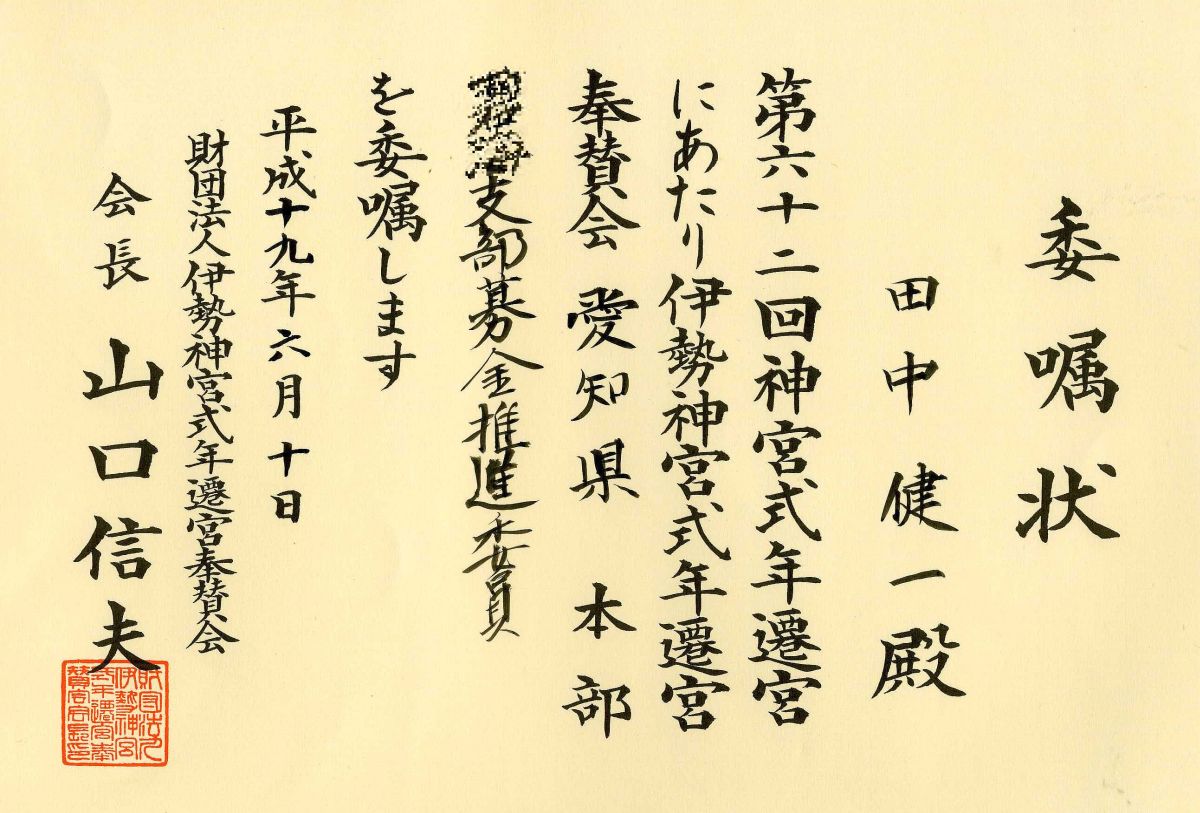 委嘱状
田中健一殿
第六十二回神宮式年遷宮
にあたり伊勢神宮式年遷宮
奉賛会 愛知県 本部
支部募金推進委員
を委嘱します
平成十九年六月十日
財団法人伊勢神宮式年遷宮奉賛会
会長 山口信夫
財団法人
伊勢神宮
式年遷宮奉
賛会会長印